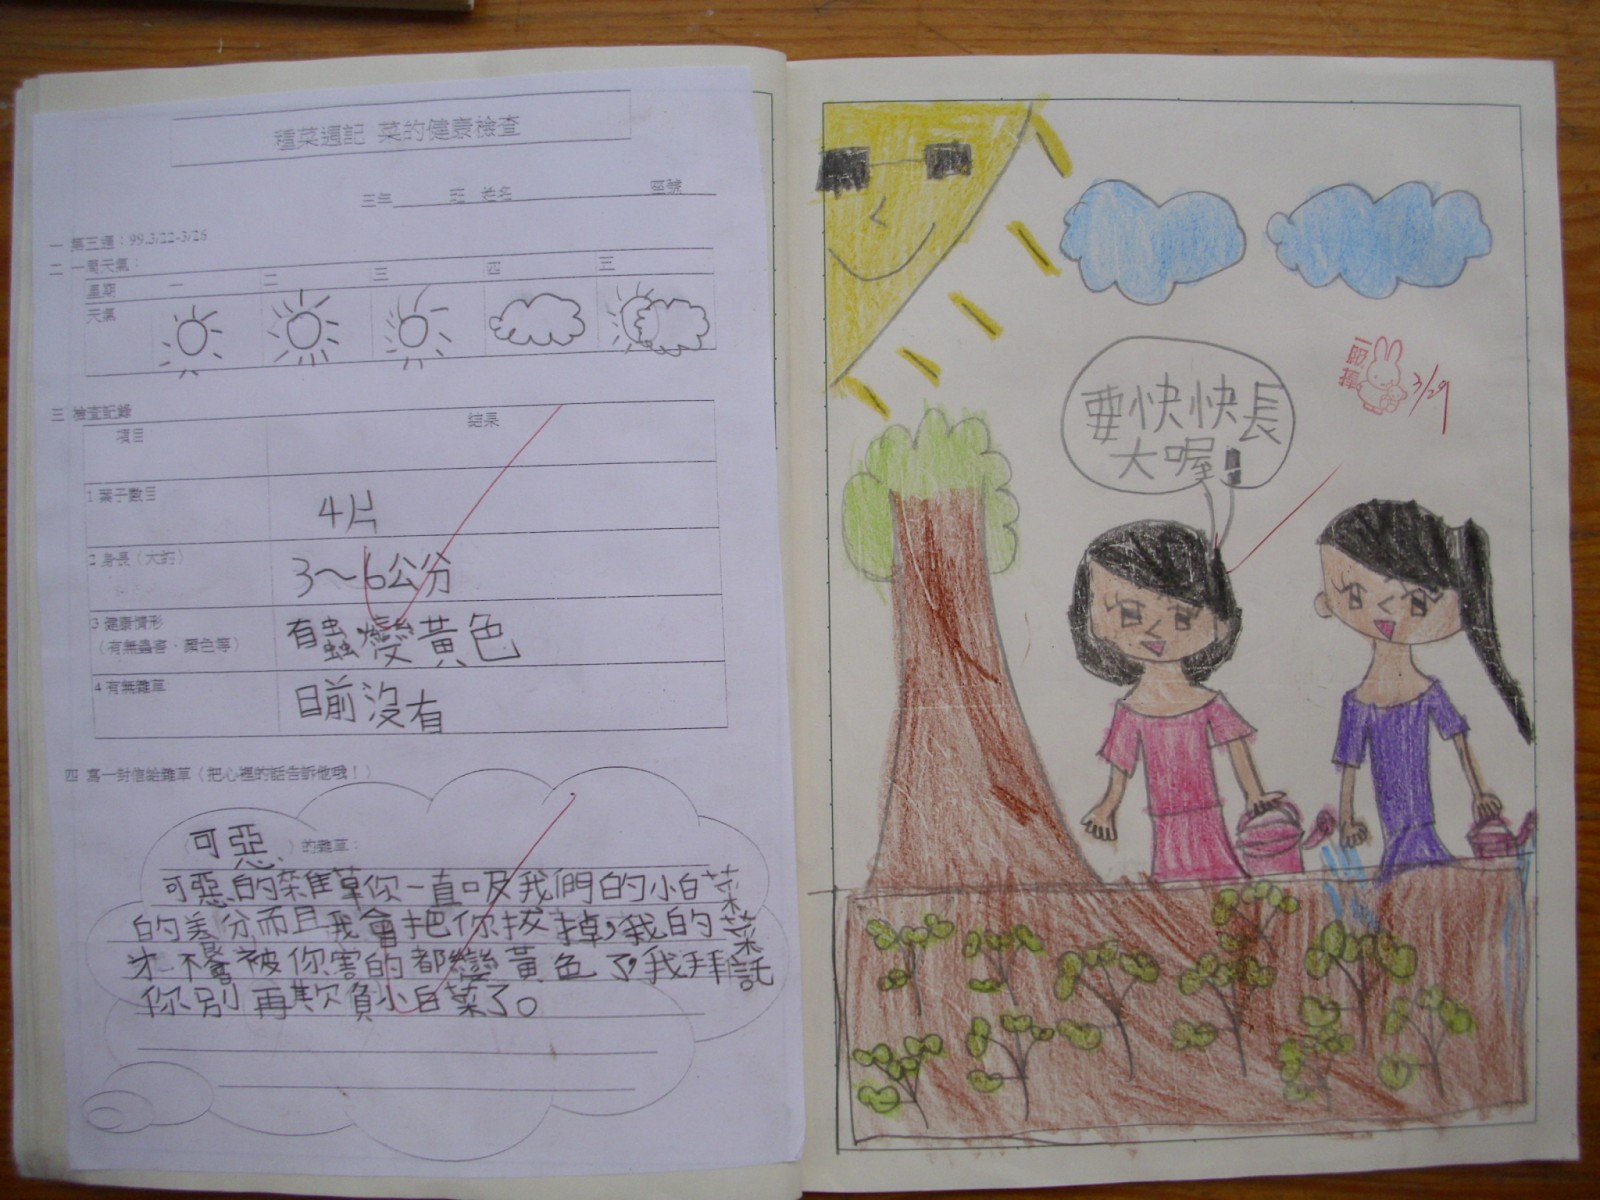 種菜週記 菜的健康檢查
三年 班 姓名 座號
一 第三週：99.3/22-3/26
二 一周天氣：
星期 一 二 三 四 五
天氣
三 檢查記錄
項目 結果
1 葉子數目 4片
2 身長（大約） 3～6公分
3 健康情形 有蟲變黃色
（有無蟲害、顏色等）
4 有無雜草 目前沒有
四 寫一封信給雜草（把心裡的話告訴他哦！）
（可惡 ）的雜草：
可惡的雜草你一直吸我們的小白菜
的養分而且我會把你拔掉，我的菜
才不會被你害的都變黃色了，我拜託
你別再欺負小白菜了。
要快快長
大喔！
一
級
棒
3/29